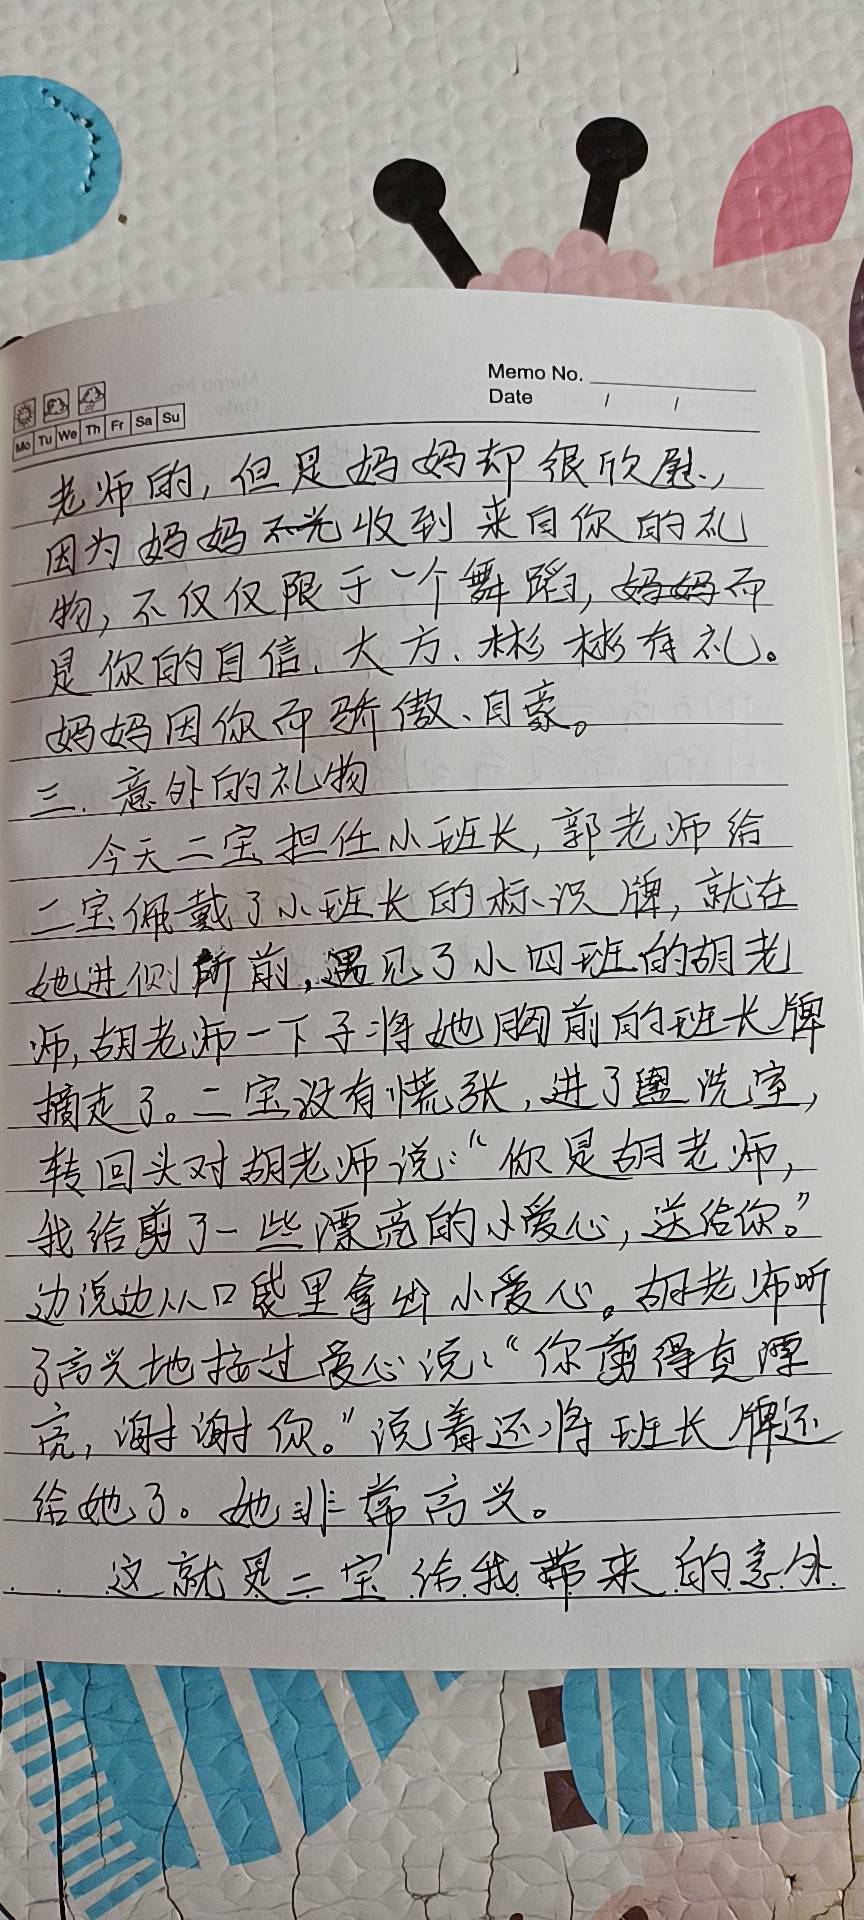 Memo No.
Date / /
Mo Tu We Th Fr Sa Su
老师的,但是妈妈却很欣慰,
因为妈妈不光收到来自你的礼
物,不仅仅限于一个舞蹈,妈妈而
是你的自信、大方、彬彬有礼。
妈妈因你而骄傲、自豪。
三、意外的礼物
今天二宝担任小班长,郭老师给
二宝佩戴了小班长的标识牌,就在
她进侧所前,遇见了小四班的胡老
师,胡老师一下子将她胸前的班长牌
摘走了。二宝没有慌张,进了盥洗室,
转回头对胡老师说:“你是胡老师,
我给剪了一些漂亮的小爱心,送给你。”
边说边从口袋里拿出小爱心。胡老师听
了高兴地接过爱心说:“你剪得真漂
亮,谢谢你。”说着还将班长牌还
给她了。她非常高兴。
这就是二宝给我带来的意外